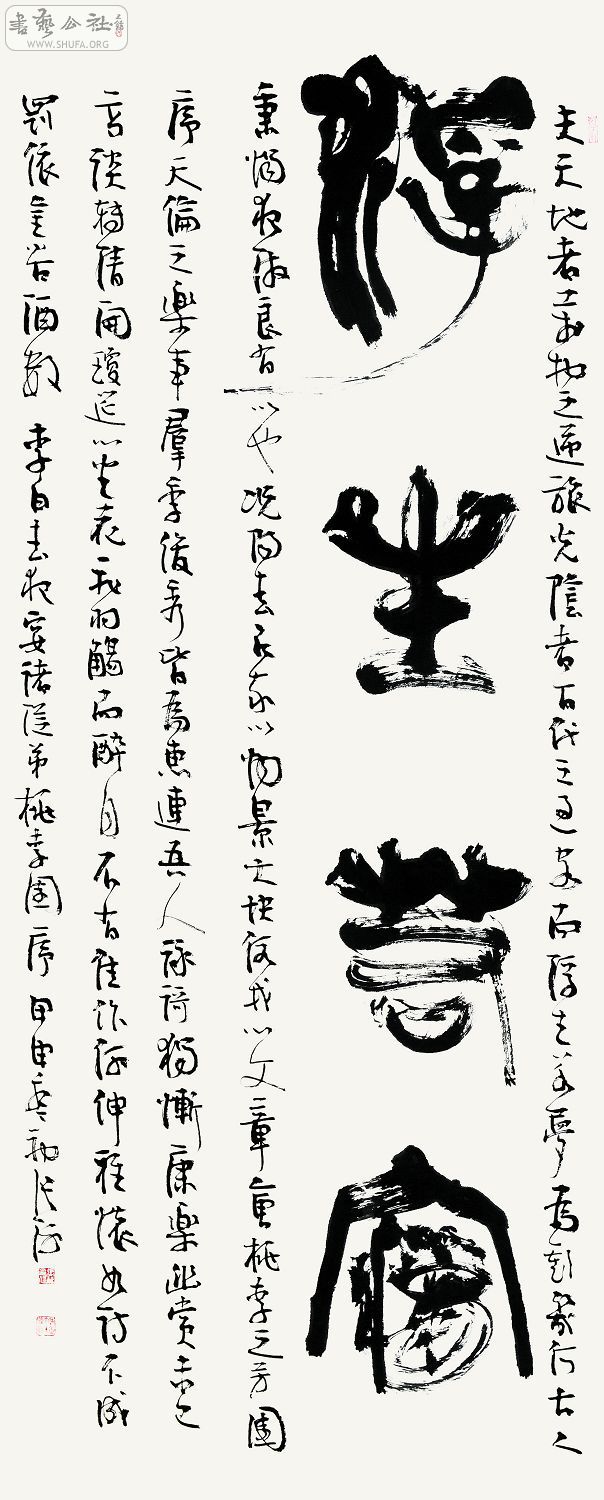 書藝公社
WWW.SHUFA.ORG
夫天地者萬物之逆旅光陰者百代之過客而浮生若夢為歡幾何古人
浮生若夢
秉燭夜遊良有以也況陽春召我以烟景大塊假我以文章會桃李之芳園
序天倫之樂事羣季俊秀皆為惠連吾人詠歌獨慚康樂幽賞未已
高談轉清開瓊筵以坐花飛羽觴而醉月不有佳作何伸雅懷如詩不成
罰依金谷酒數 李白春夜宴諸從弟桃李園序 甲申